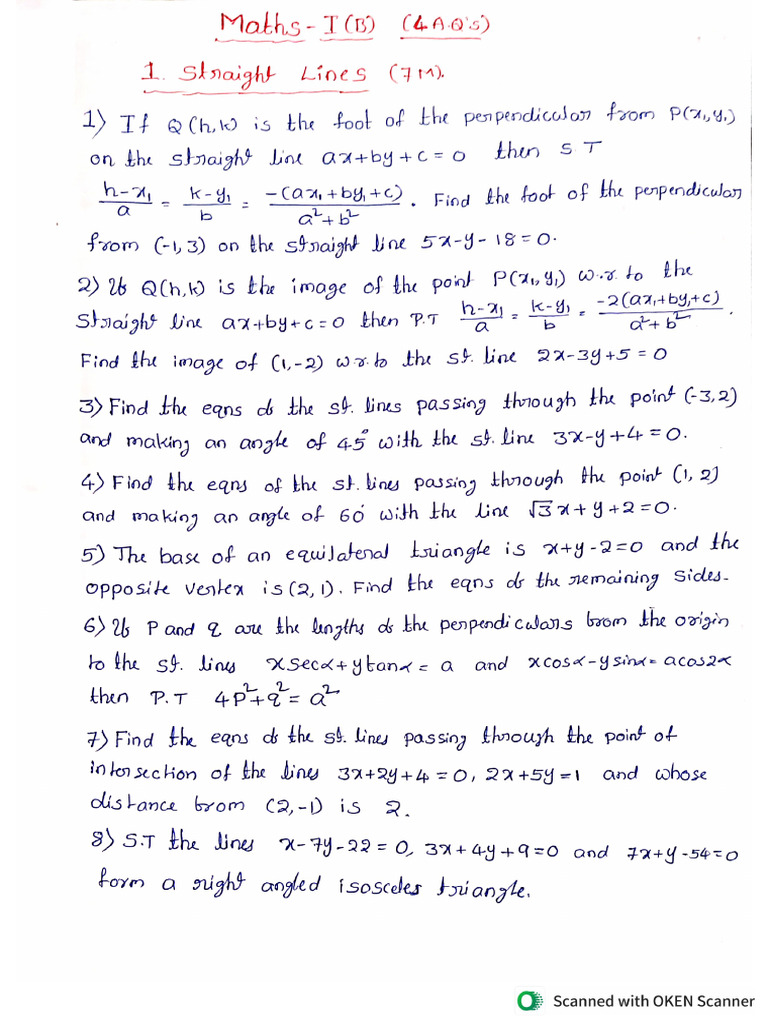 Maths - I(B) (4 A.Q's)
1. Straight Lines (7M).
1) If Q(h,k) is the foot of the perpendicular from P(x₁,y₁)
on the straight line ax+by+c=0 then S T
h-x₁/a = k-y₁/b = -(ax₁+by₁+c)/a²+b² . Find the foot of the perpendicular
from (-1,3) on the straight line 5x-y-18=0.
2) If Q(h,k) is the image of the point P(x₁,y₁) w.r.to the
straight line ax+by+c=0 then P.T h-x₁/a = k-y₁/b = -2(ax₁+by₁+c)/a²+b² .
Find the image of (1,-2) w.r.to the st. line 2x-3y+5=0
3) Find the eqns of the st. lines passing through the point (-3,2)
and making an angle of 45° with the st. line 3x-y+4=0.
4) Find the eqns of the st. lines passing through the point (1,2)
and making an angle of 60° with the line √3x+y+2=0.
5) The base of an equilateral triangle is x+y-2=0 and the
opposite vertex is (2,1). Find the eqns of the remaining sides.
6) If P and q are the lengths of the perpendiculars from the origin
to the st. lines xsecα+ytanα=a and xcosα-ysinα=acos2α
then P.T 4P²+q²=a²
7) Find the eqns of the st. lines passing through the point of
intersection of the lines 3x+2y+4=0, 2x+5y=1 and whose
distance from (2,-1) is 2.
8) S.T the lines x-7y-22=0, 3x+4y+9=0 and 7x+y-54=0
form a right angled isosceles triangle.
Scanned with OKEN Scanner